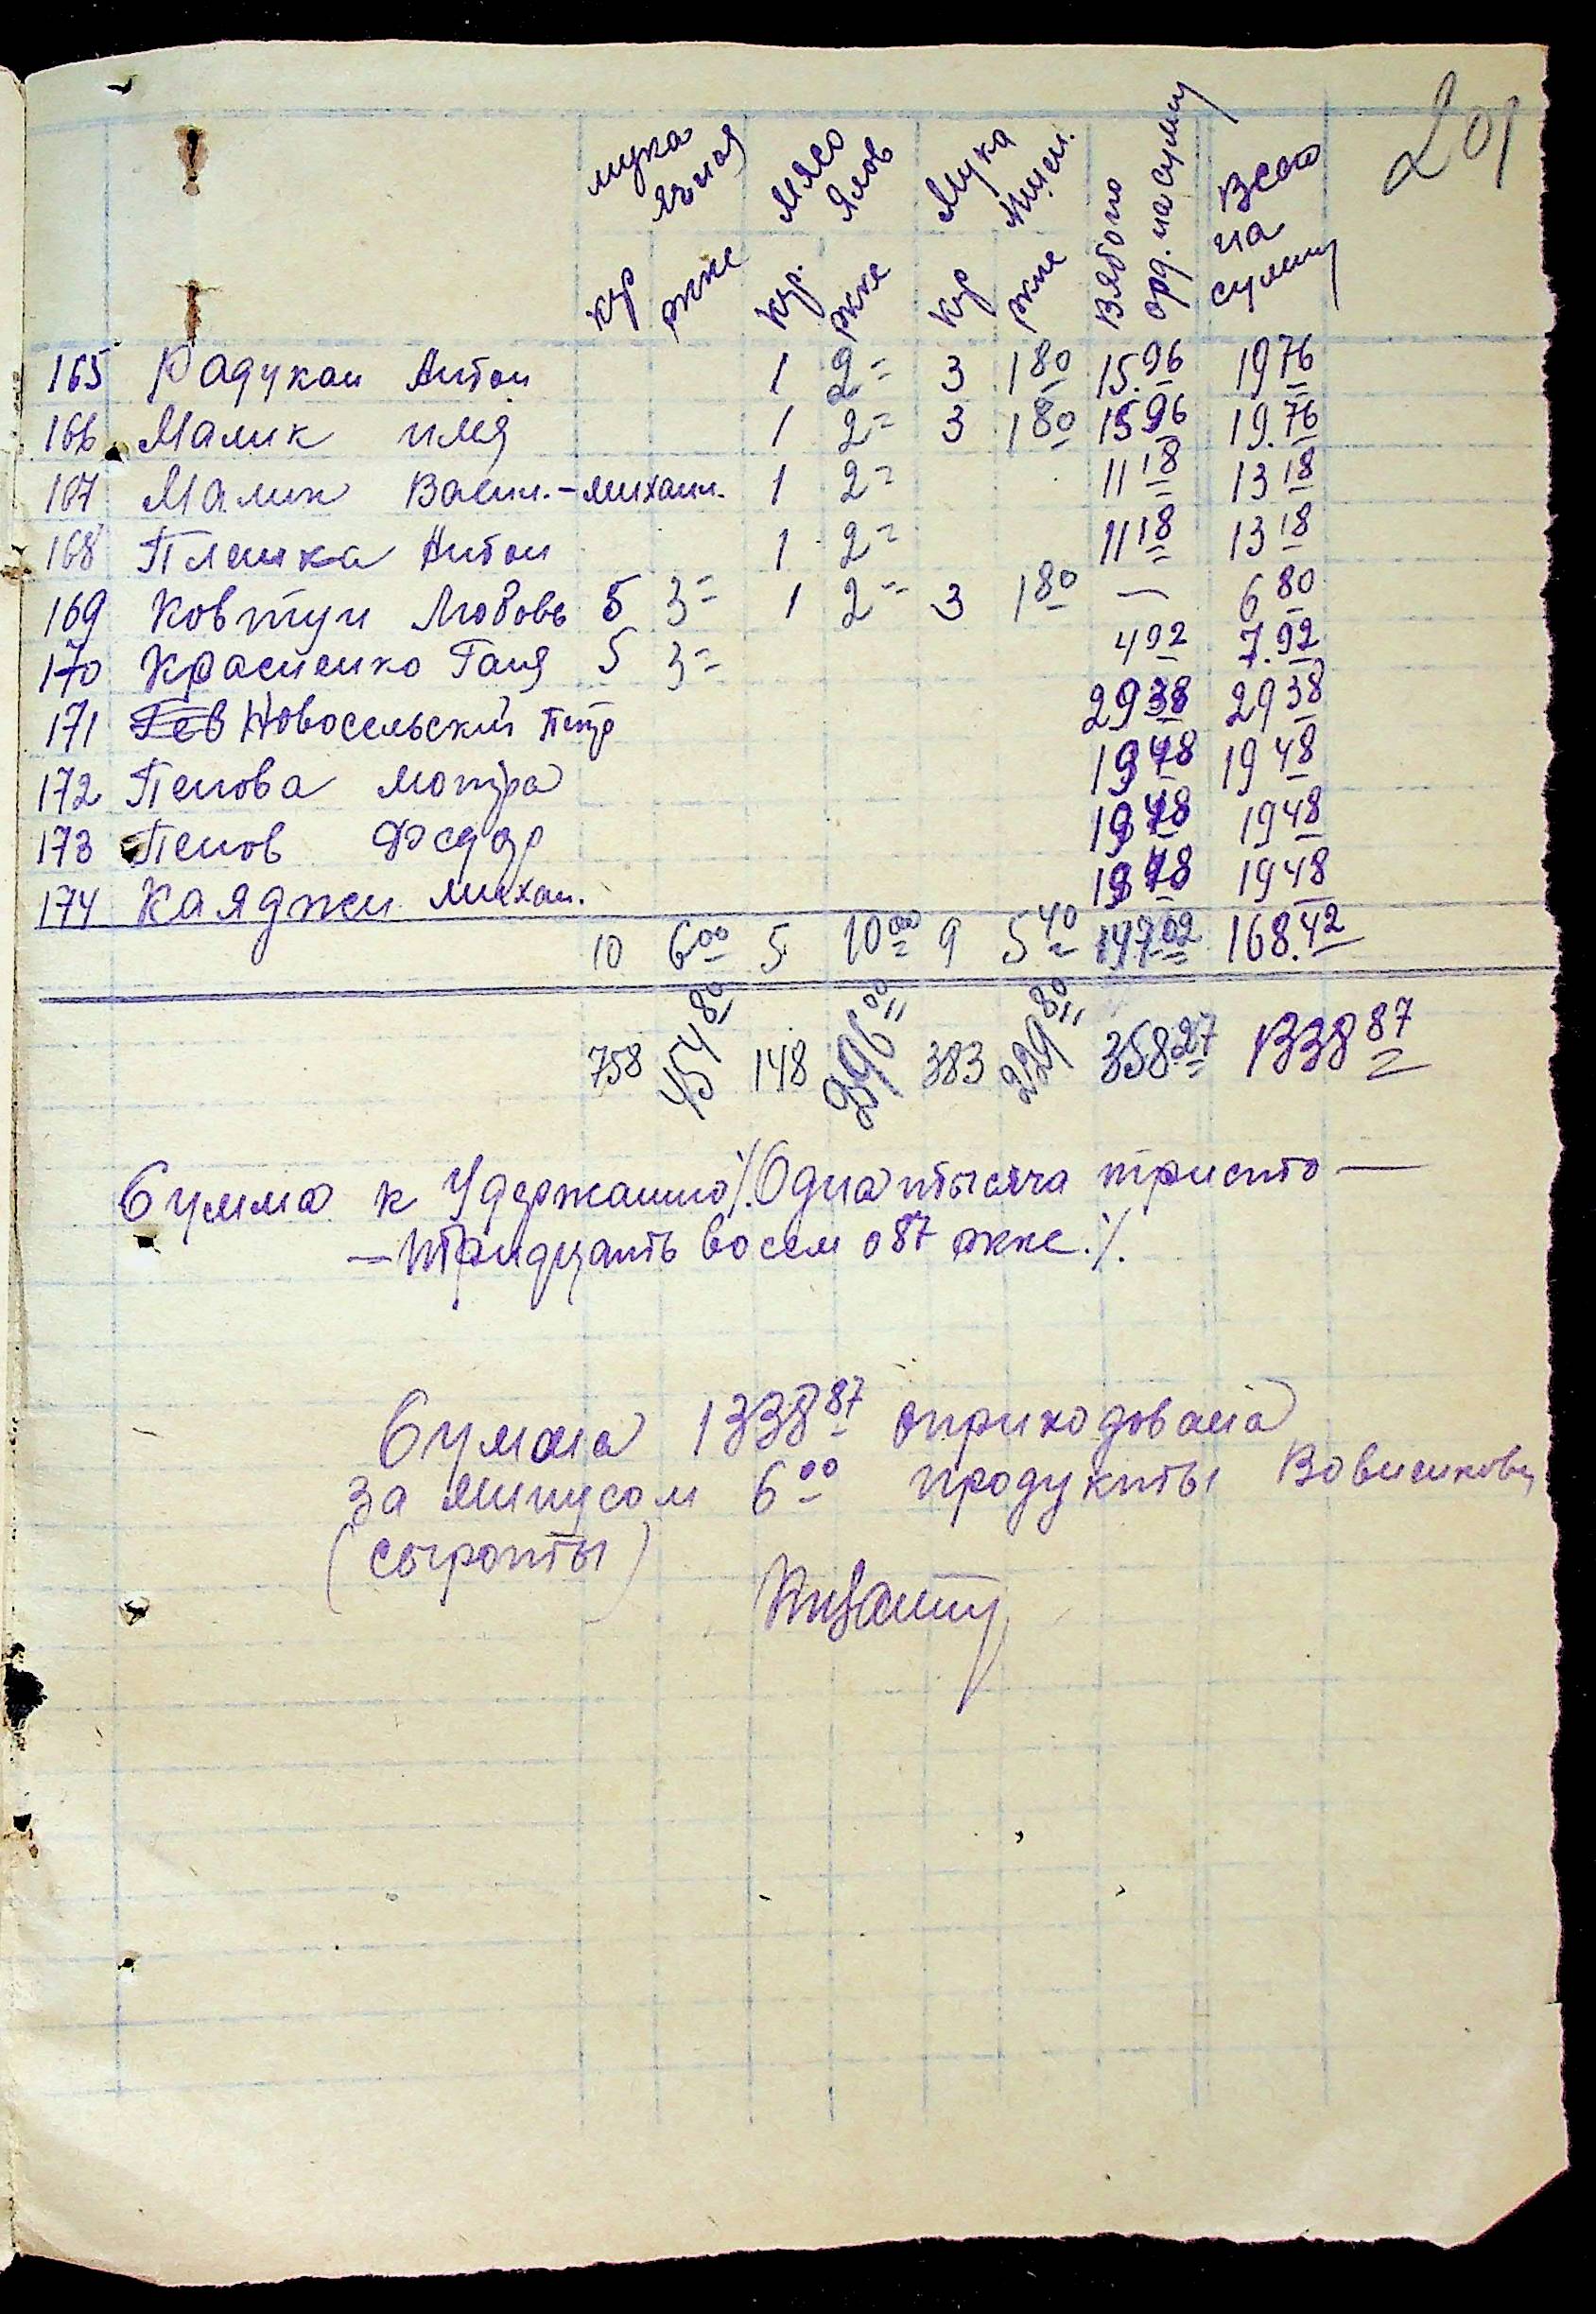 201
мука ячная мясо ялов Мука пшен. Взято по орд. на сумму Всего на сумму
кгр ркке кгр. ркке кгр ркке
165 Радукан Антон 1 2= 3 1 80 15.96 19 76
166 Малик имя 1 2= 3 1 80 15 96 19.76
167 Малик Васил.-михаил. 1 2= 11 18 13 18
168 Плешка Антон 1 2= 11 18 13 18
169 Ковтун Любовь 5 3= 1 2= 3 1 80 — 6 80
170 Красненко Ганя 5 3= 4 92 7.92
171 Новосельский Петр 29 38 29 38
172 Пенова мотря 19 48 19 48
173 Пенов Федор 19 48 19 48
174 Каяджи михаи. 19 48 19 48
10 6 00 5 10 00 9 5 40 147 02 168.42
758 454 80 148 296 00 383 229 80 358 27 1338 87
Сумма к Удержанию ·/.Одна тысяча тристо —
— тридцать восем о 87 ркке ·/.
Сумма 1338 87 оприходована
за минусом 6 00 продукты
(сыроты)